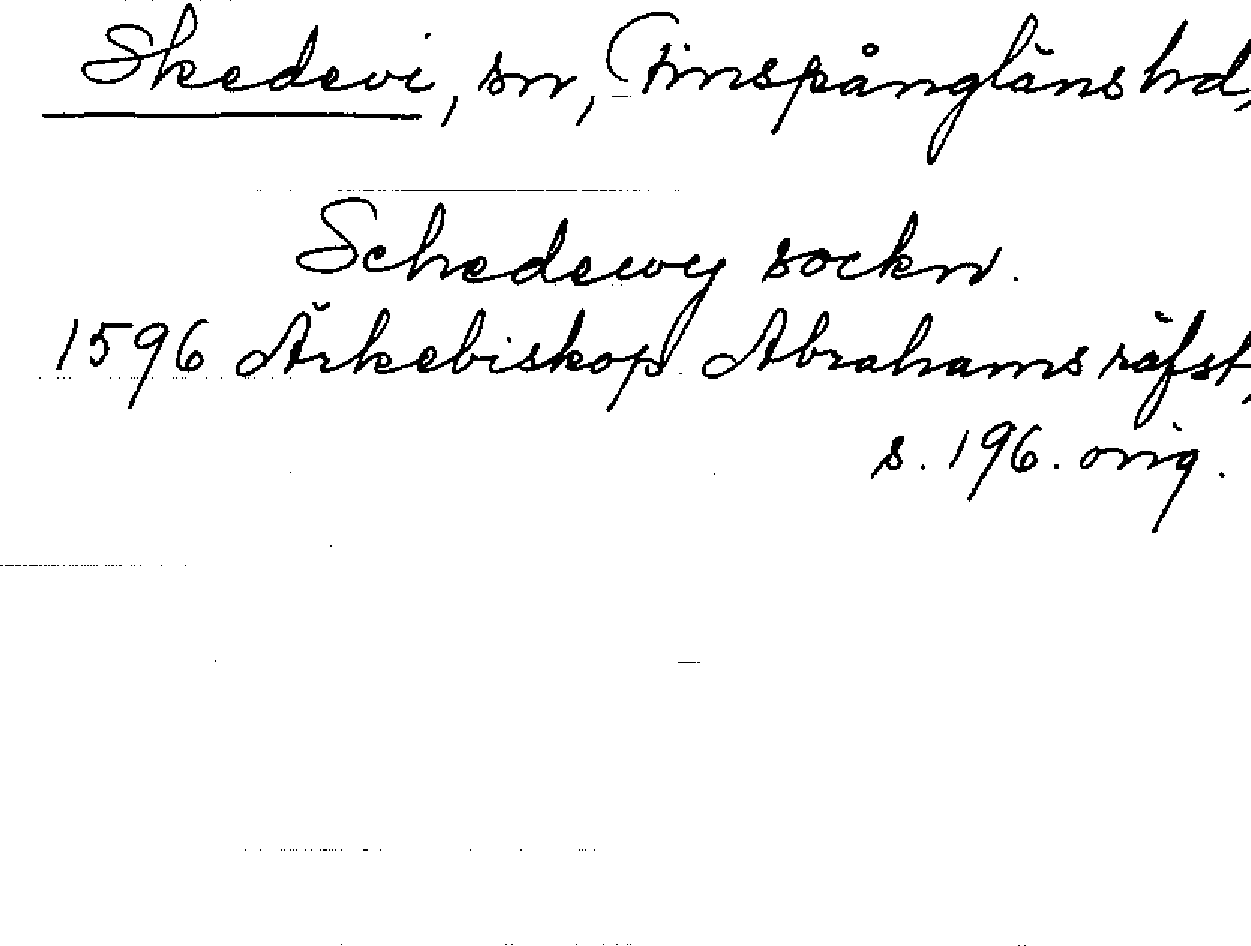 Skedevi, sn, Finspångläns hd,
Schedewy sockn.
1596 Ärkebiskop Abrahams räfst,
s. 196. orig.